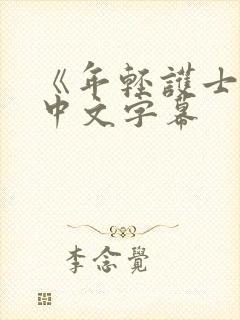 《年輕護士
中文字幕
李念覺